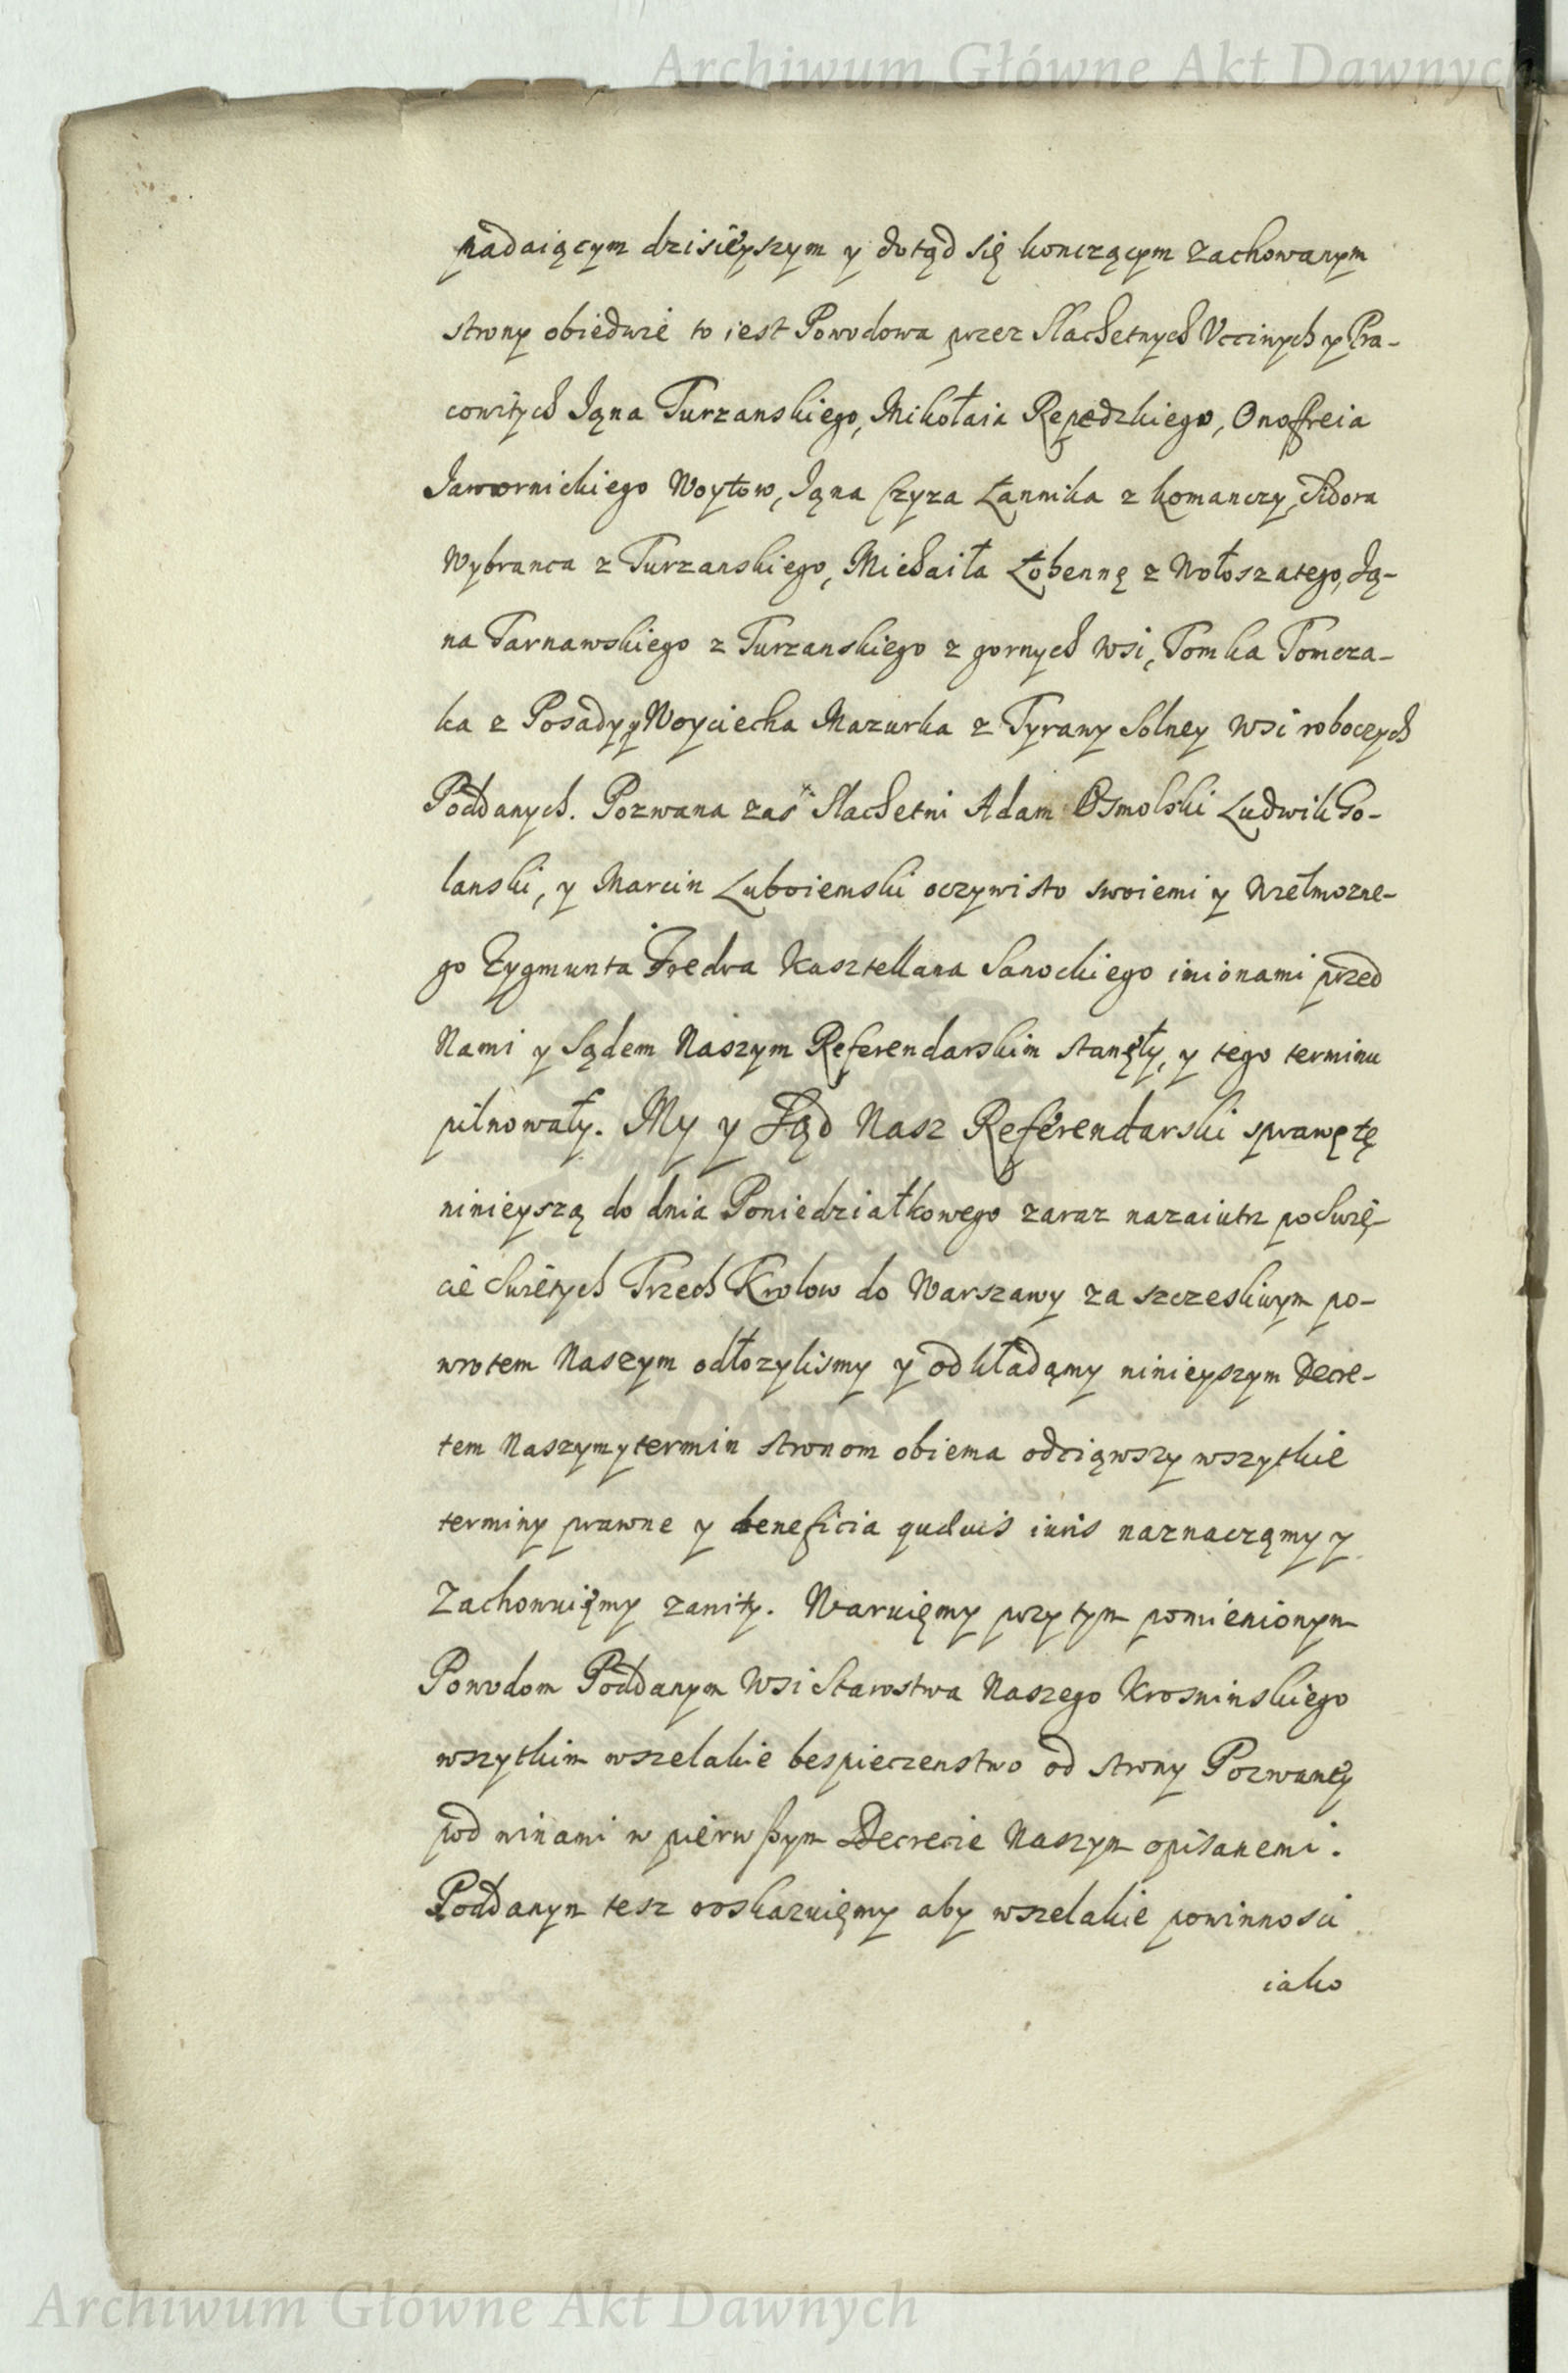 Archiwum Główne Akt Dawnych
padaiącym dzisieyszym y dotąd się konczącym zachowanym
strony obiedwie to iest Powodowa przez Slachetnych Vccinych y Pra-
cowitych Iąna Turzanskiego, Mikołaia Repedzkiego, Onofreia
Jawornickiego Woytow, Iąna Czyza Łannika z Komanczy, Sidora
Wybranca z Turzanskiego, Michaiła Łobennę z Wołoszatego, Ią-
na Tarnawskiego z Turzanskiego z gornych wsi, Tomka Tomcza-
ka z Posady y Woyciecha Mazurka z Tyrawy Solney wsi roboczych
Poddanych. Pozwana zas Slachetni Adam Osmolski Ludwik Go-
lanski, y Marcin Luboiemski oczywisto swoiemi y Wielmozne-
go Zygmunta Fredra Kasztellana Sanockiego imionami przed
Nami y Sądem Naszym Referendarskim stanęły, y tego terminu
pilnowały. My y Sąd Nasz Referendarski sprawę tę
ninieyszą do dnia Poniedziałkowego zaraz nazaiutrz po Swię-
cie Swietych Trzech Krolow do Warszawy za szczesliwym po-
wrotem Naszym odłozylismy y odkładąmy ninieyszym Decre-
tem Naszym y termin stronom obiema odciąwszy wszytkie
terminy prawne y beneficia quduis iuris naznaczamy y
Zachowuięmy zawity. Waruięmy przy tym pomienionym
Powodom Poddanym Wsi Starostwa Naszego Krosninskiego
wszytkim wszelakie bespieczenstwo od strony Pozwaney
pod winami w pierwßym Decrecie Naszym opisanemi.
Poddanym tesz roskazuięmy aby wszelakie powinnosci
iako
Archiwum Główne Akt Dawnych